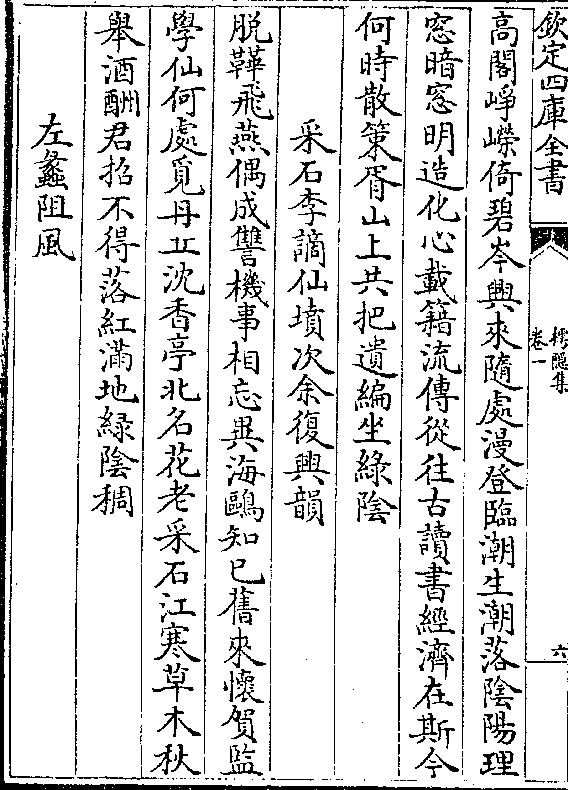 欽定四庫全書
樗隠集
卷一
六
高閣崢嶸倚碧岑興來隨處漫登臨潮生潮落陰陽理
窓暗窓明造化心載籍流傳從往古讀書經濟在斯今
何時散策胥山上共把遺編坐緑陰
采石李謫仙墳次余復興韻
脱鞾飛燕偶成讐機事相忘異海鷗知已舊來懷賀監
學仙何處覓丹丘沈香亭北名花老采石江寒草木秋
舉酒酬君招不得落紅滿地緑陰稠
左蠡阻風